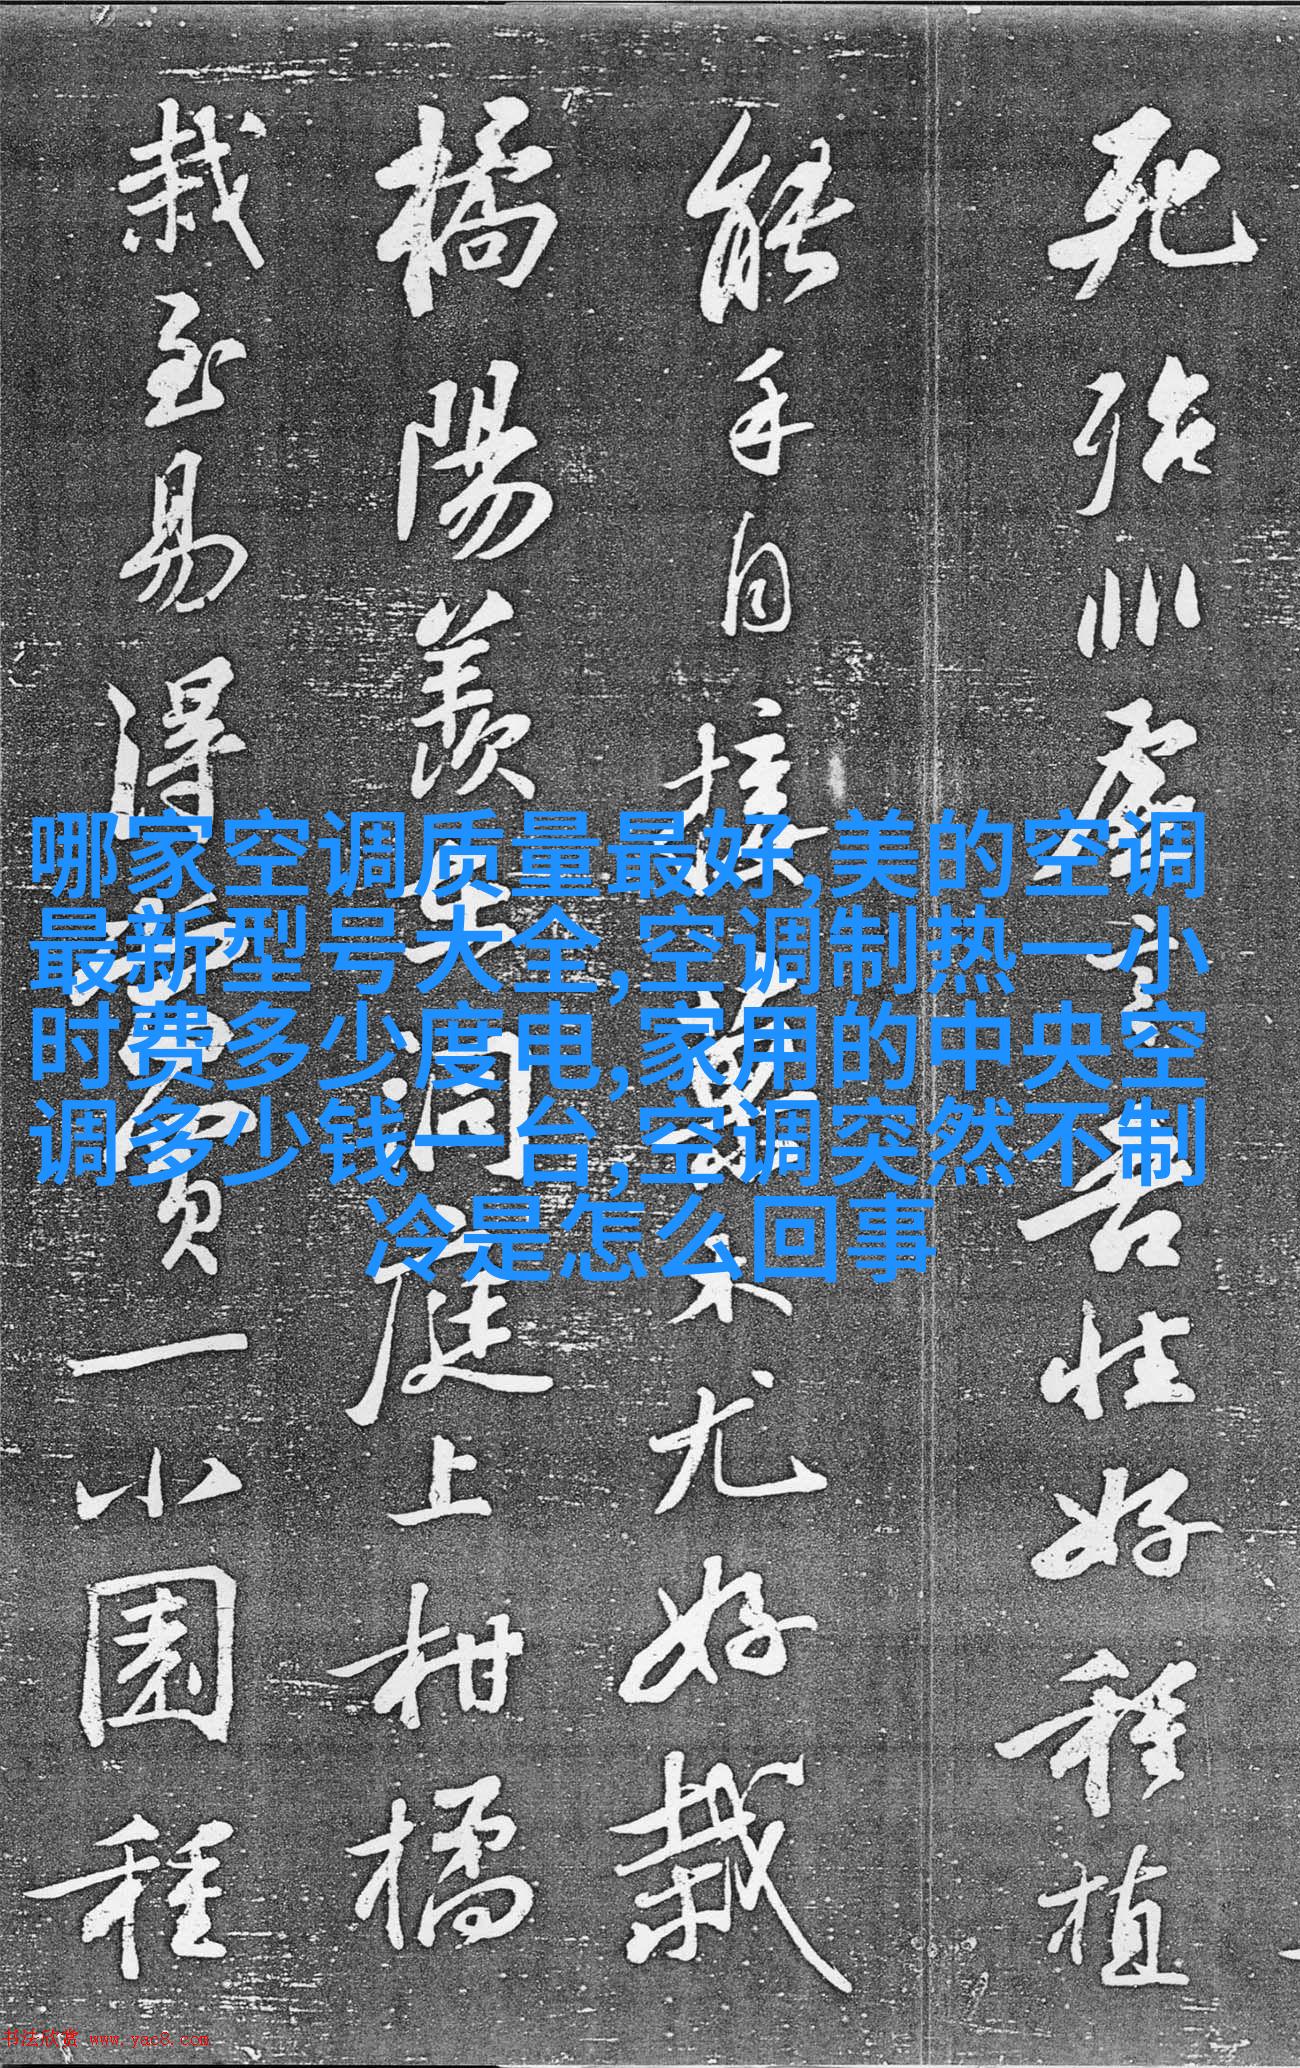 死殆非虛言吾性好種植
能手自接菓木尤好栽
橘陽羨在洞庭上柑橘
栽至易得當買一小園種
哪家空调质量最好,美的空调
最新型号大全,空调制热一小
时费多少度电,家用的中央空
调多少钱一台,空调突然不制
冷是怎么回事
书法欣赏 www.yac8.com